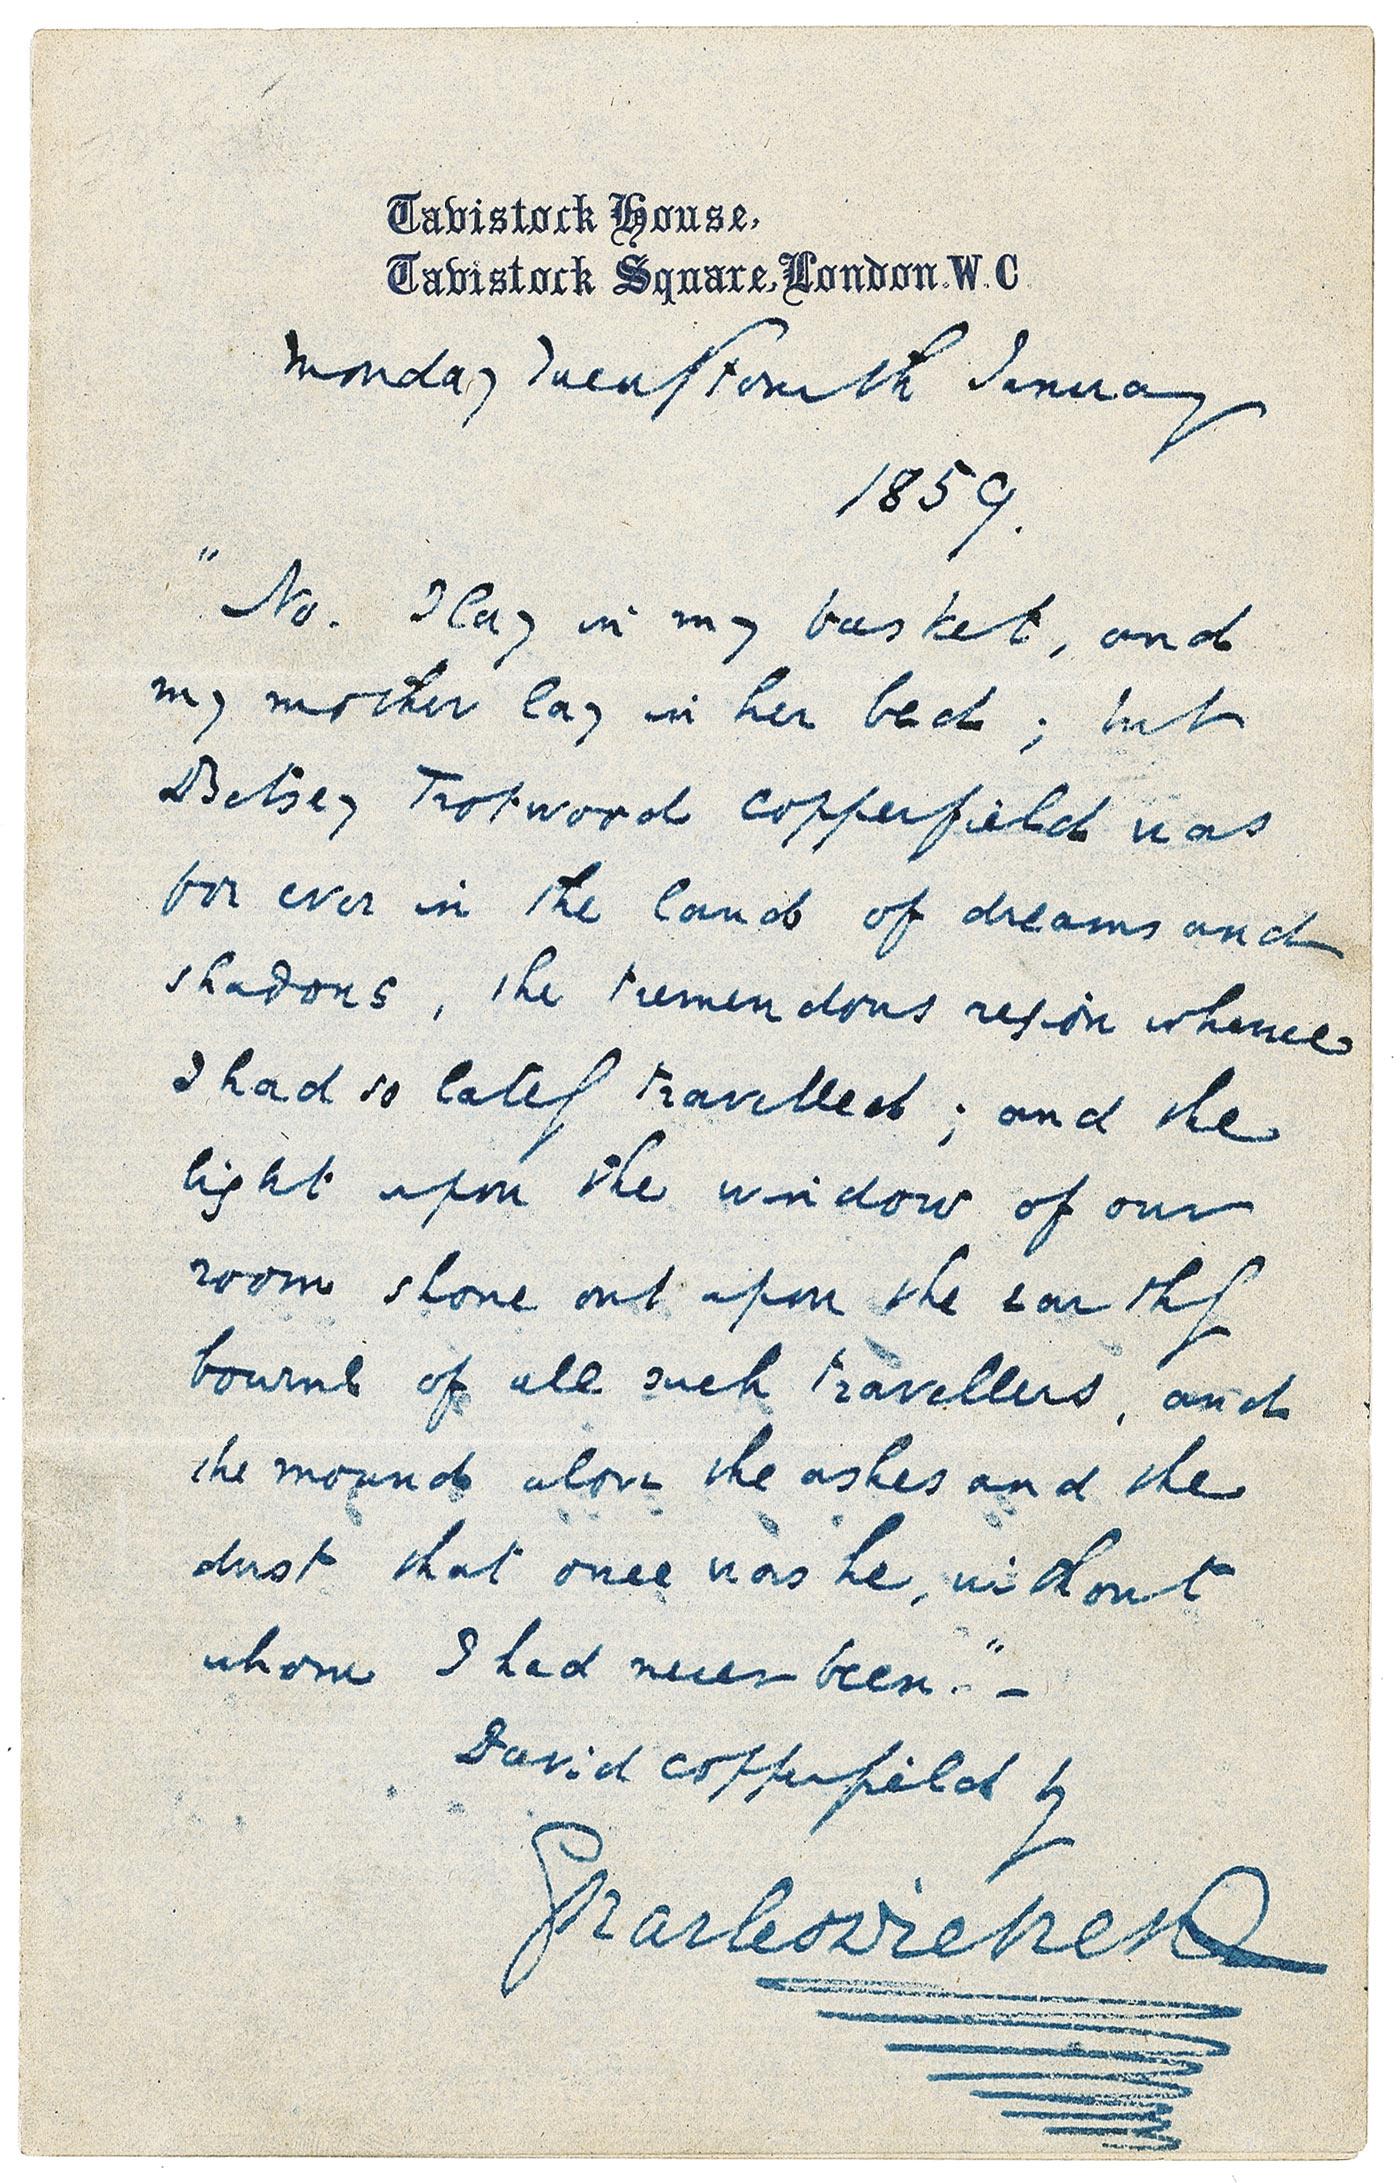 Tavistock House,
Tavistock Square, London. W. C
Monday Twenty Fourth January
1859.
"No. I lay in my basket, and
my mother lay in her bed; but
Betsey Trotwood Copperfield was
for ever in the land of dreams and
shadows, the tremendous region whence
I had so lately travelled; and the
light upon the window of our
room shone out upon the earthly
bourne of all such travellers, and
the mound above the ashes and the
dust that once was he, without
whom I had never been." –
David Copperfield by
Charles Dickens